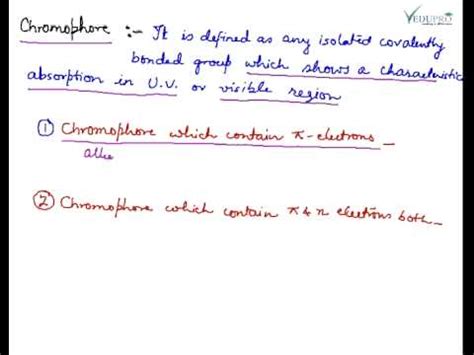 VEDUPRO
Chromophore :- It is defined as any isolated covalently
bonded group which shows a characteristic
absorption in U.V. or visible region
① Chromophore which contain π-electrons -
alke
② Chromophore which contain π & n electrons both -